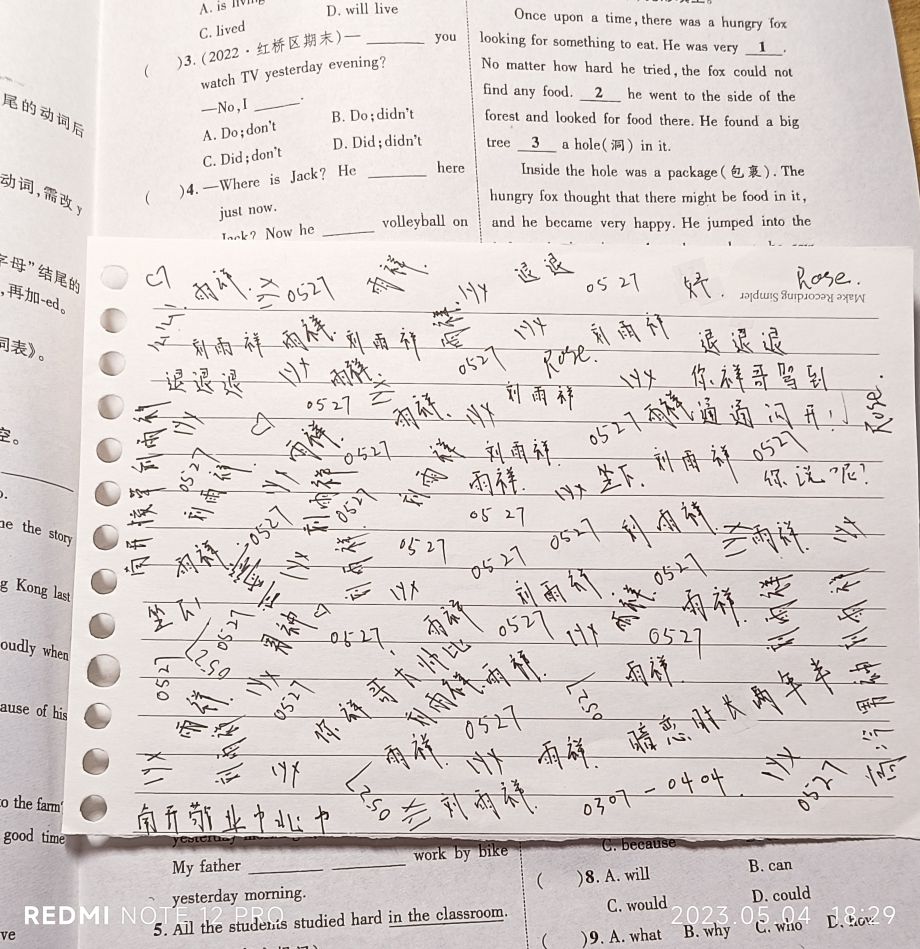 A. is living
D. will live
C. lived
( )3. (2022·红桥区期末)— ______ you
watch TV yesterday evening?
—No, I ______.
A. Do;don't
B. Do;didn't
C. Did;don't
D. Did;didn't
( )4. —Where is Jack? He ______ here
just now.
Jack? Now he ______ volleyball on
Once upon a time, there was a hungry fox
looking for something to eat. He was very 1 .
No matter how hard he tried, the fox could not
find any food. 2 he went to the side of the
forest and looked for food there. He found a big
tree 3 a hole(洞) in it.
Inside the hole was a package(包裹). The
hungry fox thought that there might be food in it,
and he became very happy. He jumped into the
尾的动词后
动词,需改y
字母"结尾的
,再加-ed。
词表》。
空。
ne the story
g Kong last
oudly when
ause of his
to the farm
good time
ve
Make Recording Simpler
雨祥. 0527 雨祥. lyx 退退 0527 好. Rose.
刘雨祥 雨祥. 刘雨祥 lyx 刘雨祥 退退退
退退退 lyx 雨祥. 0527 Rose. lyx 你祥哥驾到
lyx 0527 雨祥. lyx 刘雨祥 0527 雨祥 通通闪开! Rose.
0527 lyx 雨祥. 0527 刘雨祥. 刘雨祥 0527
刘雨祥. 刘雨祥 0527 雨祥. lyx 坐下. 你说呢?
雨祥 0527 lyx 0527 0527 0527 刘雨祥. 雨祥. lyx
坐下! 0527 lyx 0527 刘雨祥 0527
0527 250 男神 0527. 雨祥 0527 lyx 雨祥. 雨祥. 0527
雨祥. lyx 0527 你祥哥太帅比 刘雨祥 雨祥. 250 雨祥.
lyx lyx 雨祥. 0527 lyx 雨祥. 暗恋时长两年半
250 刘雨祥. 0307-0404. lyx 0527
南开敬业中心中
My father ______ ______ work by bike
yesterday morning.
5. All the students studied hard in the classroom.
C. because
( )8. A. will
B. can
C. would
D. could
( )9. A. what B. why C. who D. how
REDMI NOTE 12 PRO
2023.05.04 18:29